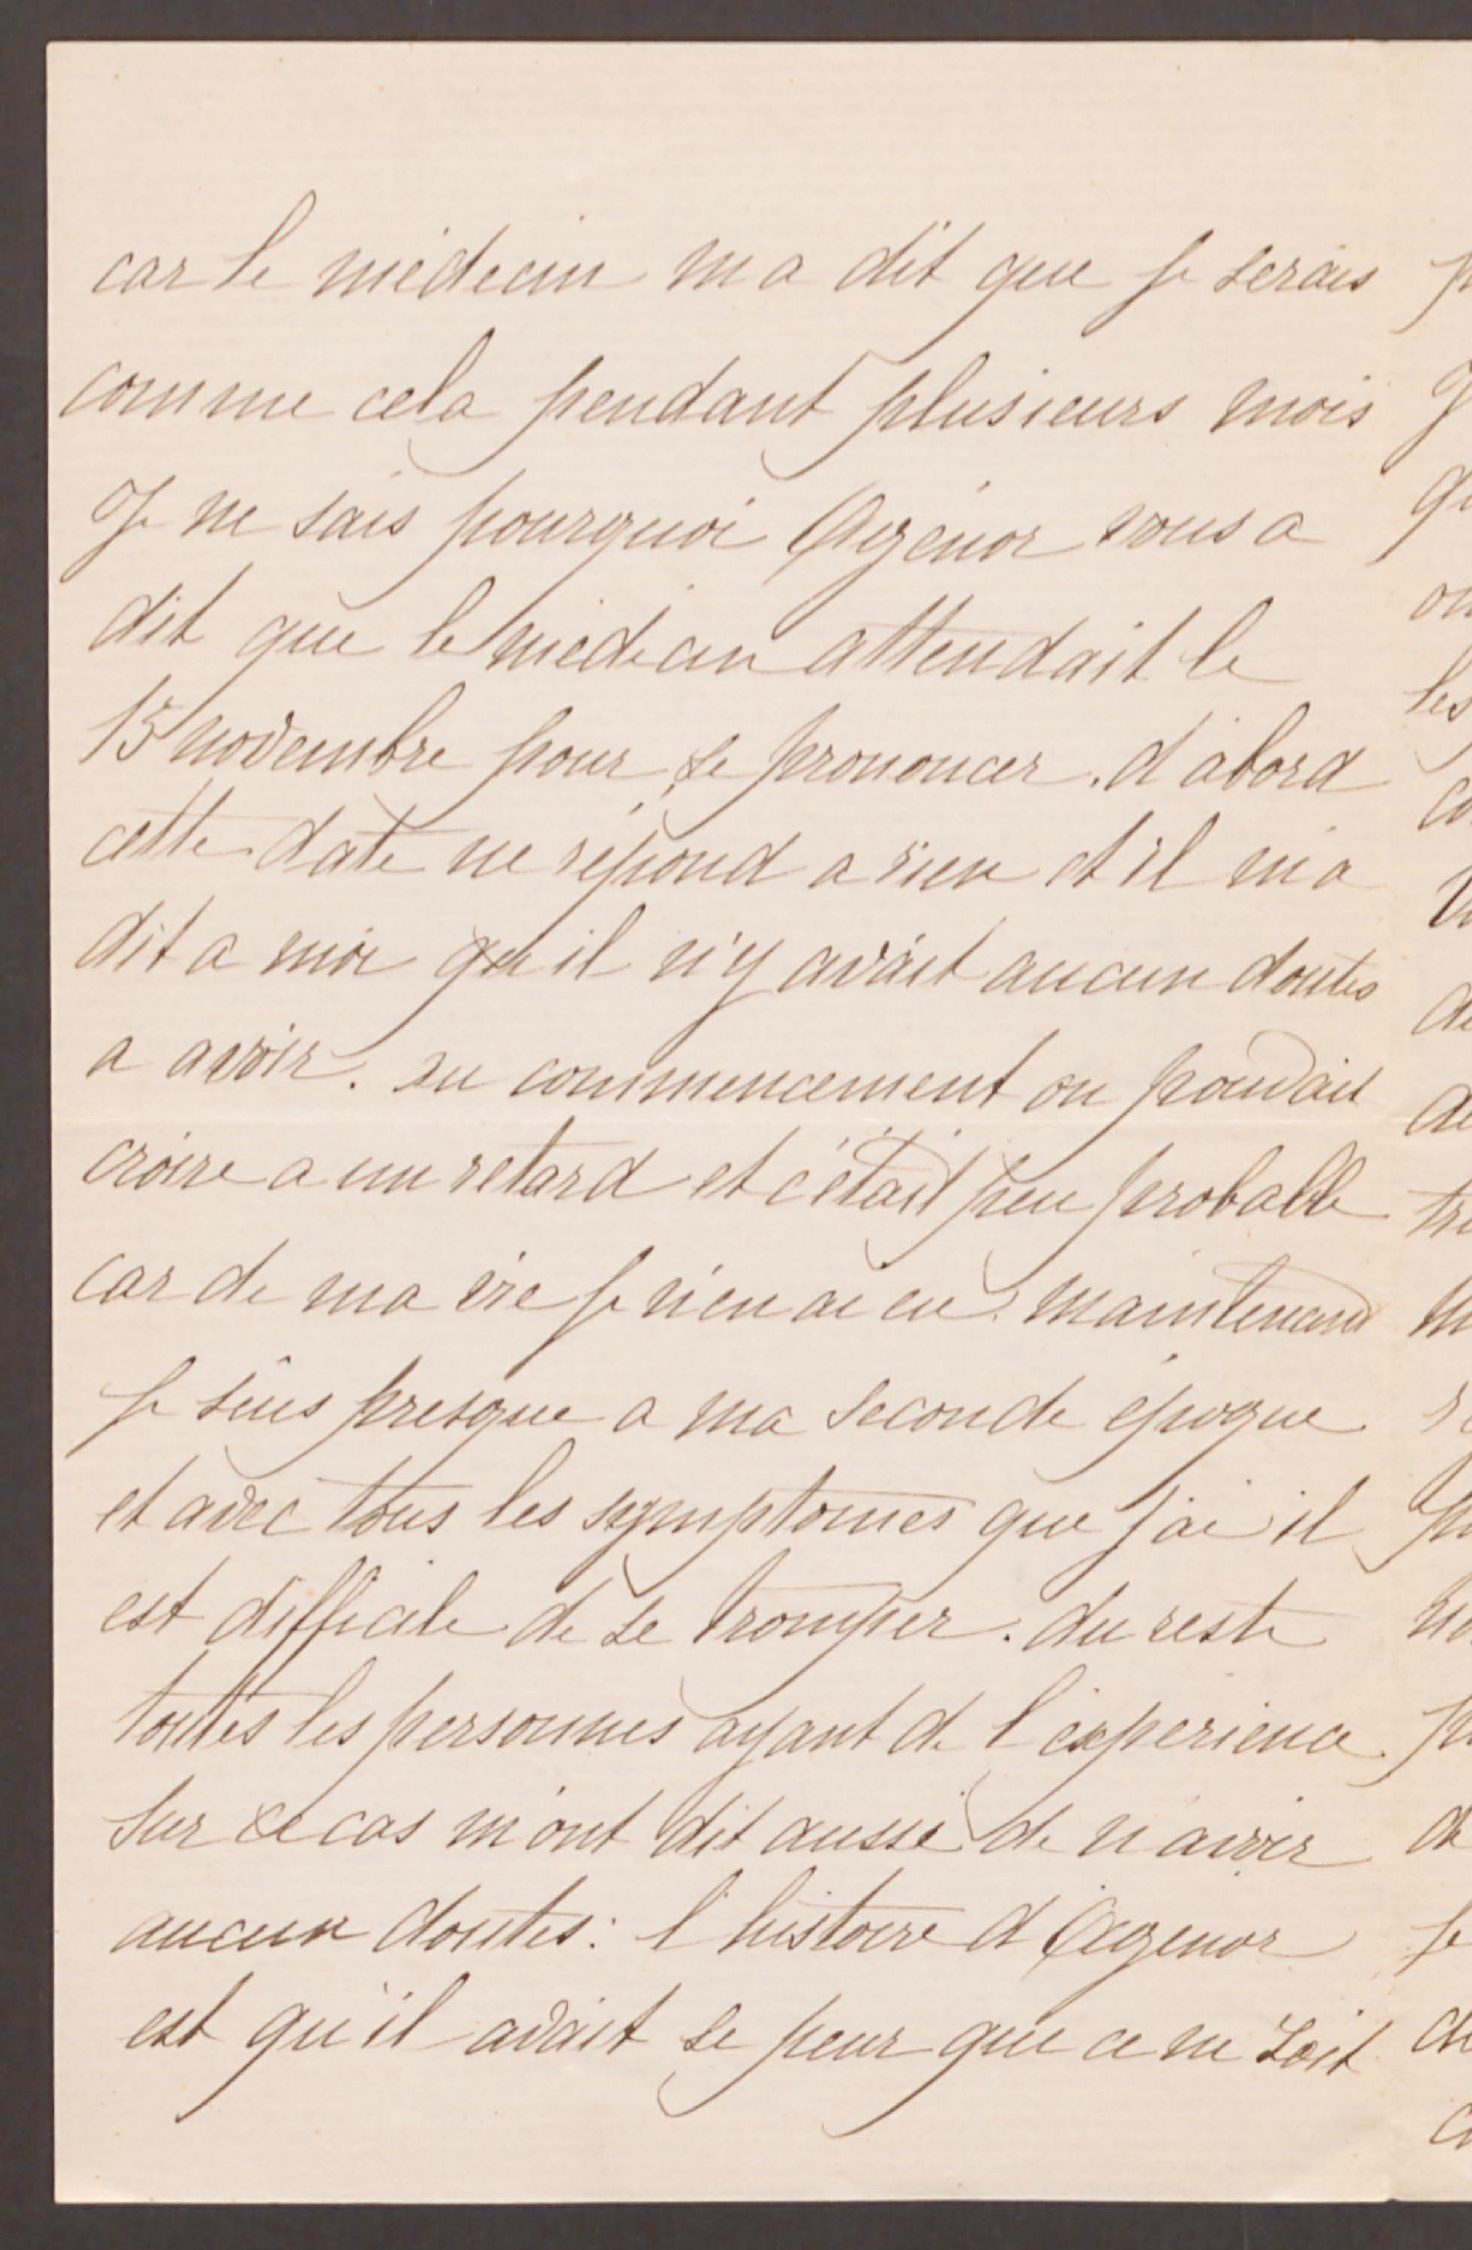 car le médecin m a dit que je serais
comme cela pendant plusieurs mois
Je ne sais pourquoi Agénor vous a
dit que le médecin attendait le
15 novembre pour se prononcer. d'abord
cette date ne répond a rien et il m'a
dit a moi qu il n'y avait aucun doutes
a avoir. au commencement on pouvait
croire a un retard et c'était peu probable
car de ma vie je n'en ai eu. maintenant
je suis presque a ma seconde époque
et avec tous les symptomes que j'ai il
est difficile de se tromper. du reste
toutes les personnes ayant de l'experience
sur ce cas m'ont dit aussi de n'avoir
aucun doutes: l'histoire d'Agenor
est qu'il avait si peur que ce ne soit